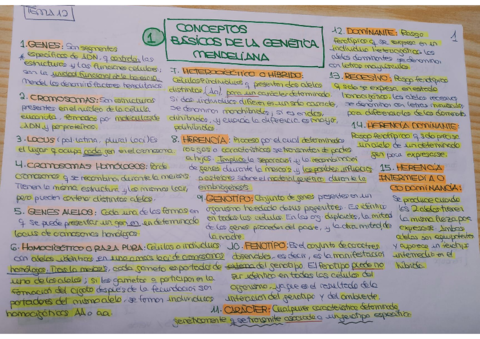 TEMA 12
1
1
CONCEPTOS
BÁSICOS DE LA GENÉTICA
MENDELIANA
1. GENES: Son segmentos
específicos de ADN, q controlan las
estructura y las funciones celulares;
son la unidad funcional de la herencia.
Mendel los denominó factores hereditarios
2. CROMOSOMAS: Son estructuras
presentes en el núcleo de la célula
eucariota, formados por moléculas de
ADN y por proteínas.
3. LOCUS (pl. latín, plural loci): Es
el lugar q ocupa cada gen en el cromosoma
4. CROMOSOMAS HOMÓLOGOS: Par de
cromosomas q se recombinan durante la meiosis
Tienen la misma estructura, y los mismos loci,
pero pueden contener distintos alelos.
5. GENES ALELOS: Cada una de las formas en
q se puede presentar un gen en un determinado
locus de cromosomas homólogos
6. HOMOCIGÓTICO O RAZA PURA: Células o individuos
con alelos idénticos en uno o más loci de cromosomas
homólogos. Tras la meiosis, cada gameto es portador de
uno de los alelos, si los gametos q participan en la
formación del cigoto después de la fecundación son
portadores del mismo alelo se forman individuos
homocigóticos AA o aa.
7. HETEROCIGÓTICO O HÍBRIDO:
Células o individuos q presentan dos alelos
distintos (Aa) para un carácter determinado
Si dos individuos difieren en un solo carácter,
se denominan monohíbridos, si es en dos
dihíbridos, y cuando la diferencia es mayor,
polihíbridos
8. HERENCIA: Proceso por el cual determinados
rasgos o características se transmiten de padres
a hijos. Implica la separación y la recombinación
de genes durante la meiosis y las posibles influencias
posteriores sobre el material genético durante la
embriogénesis
9. GENOTIPO: Conjunto de genes presentes en un
organismo heredado de sus progenitores. Es idéntico
en todas las células. En los org diploides, la mitad
de los genes proceden del padre, y la otra mitad de
la madre
10. FENOTIPO: Es el conjunto de caracteres
observables, es decir, es la manifestación
externa del genotipo. El fenotipo puede no
ser idéntico en todas las células del
organismo, ya que es el resultado de la
interacción del genotipo y del ambiente.
11. CARÁCTER: Cualquiera característica determinada
genéticamente y se transmite asociada a un fenotipo específico
12. DOMINANTE: Rasgo
fenotípico q se expresa en un
individuo heterocigótico. Los
alelos dominantes se denominan
con letras mayúsculas
13. RECESIVO: Rasgo fenotípico
q solo se expresa en estado
homocigótico. Los alelos recesivos
se denominan con letras minúsculas
para diferenciarlos de los dominantes
14. HERENCIA DOMINANTE:
Rasgo fenotípico q solo precisa
un alelo de un determinado
gen para expresarse.
15. HERENCIA
INTERMEDIA O
CODOMINANCIA:
Se produce cuando
los 2 alelos tienen
la misma fuerza para
expresarse. Ambos
alelos son equipotentes
y aparece un rasgo
intermedio en el
híbrido